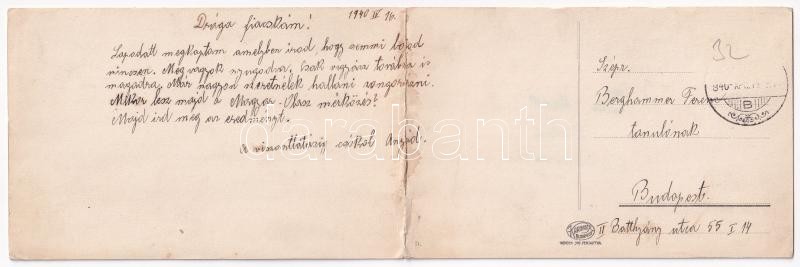 Drága fiacskám!
1940 IV 16.
Lapodat megkaptam amelyben irod, hogy semmi bajod
nincsen. Megvagyok nyugodva. Csak vigyázz továbra is
magadra. Már nagyon szeretnélek hallani zongorázni.
Mikor lesz majd a Magyar-Olasz mérkőzés?
Majd ird meg az eredményt.
A viszontlátásig csókol Anyád.
32
Szépr.
Berghammer Ferenc
tanulónak
Budapest.
II Batthyány utca 55 I. 14
B
darabanth